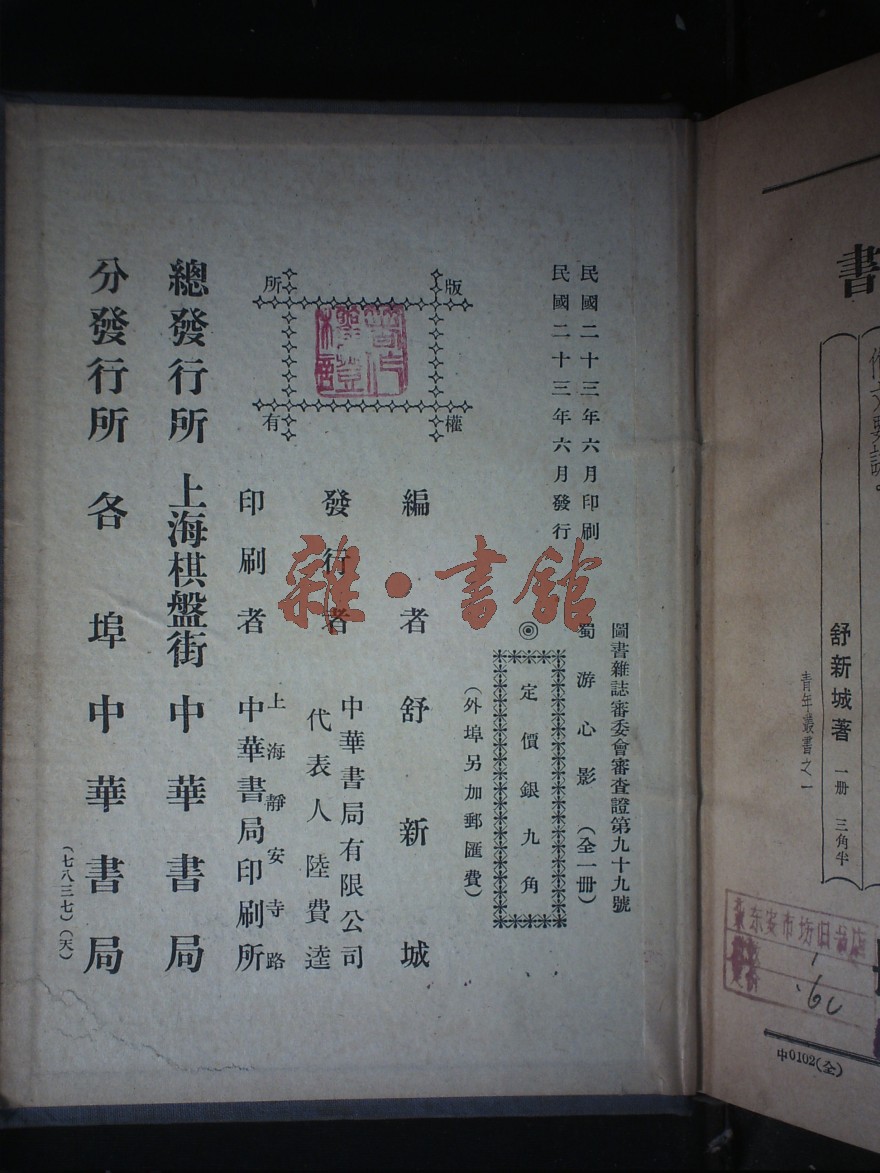 民國二十三年六月印刷
民國二十三年六月發行
圖書雜誌審委會審查證第九十九號
蜀游心影（全一冊）
◎定價銀九角
（外埠另加郵匯費）
版權所有
編者 舒新城
發行者 中華書局有限公司
代表人 陸費逵
印刷者 上海靜安寺路
中華書局印刷所
總發行所 上海棋盤街 中華書局
分發行所 各埠中華書局
（七八三七）（天）
雜·書館
書
舒新城著 一册 三角半
青年叢書之一
东安市坊旧书店
.60
中0102(全)